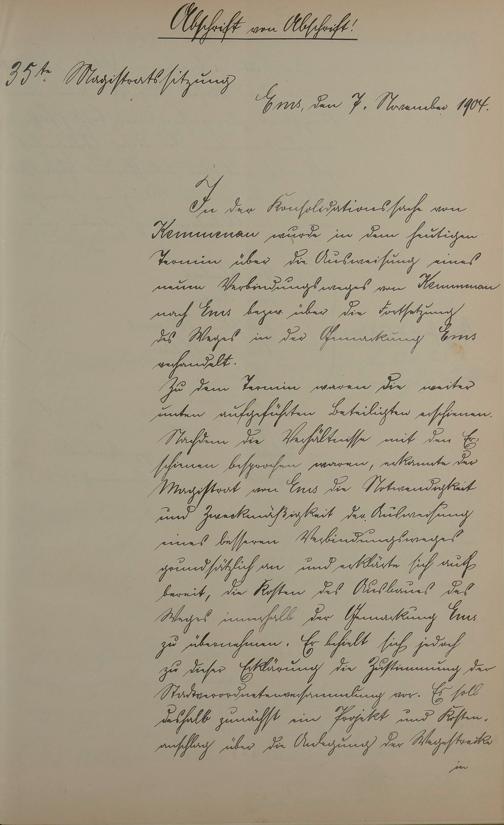 Abschrift von Abschrift!
35te Magistratssitzung
Ems, den 7. November 1904.
In der Konsolidationssache von
Kemmenau wurde in dem heutigen
Termin über die Ausweisung eines
neuen Verbindungsweges von Kemmenau
nach Ems bezw über die Fortsetzung
des Weges in der Gemarkung Ems
verhandelt.
Zu dem Termin waren die weiter
unten aufgeführten Beteiligten erschienen.
Nachdem die Verhältnisse mit den Er-
schienen besprochen waren, erkannte der
Magistrat von Ems die Notwendigkeit
und Zweckmäßigkeit der Ausweisung
eines besseren Verbindungsweges
grundsätzlich an und erklärte sich auch
bereit, die Kosten des Ausbaues des
Weges innerhalb der Gemarkung Ems
zu übernehmen. Er behielt sich jedoch
zu dieser Erklärung die Zustimmung der
Stadtverordnetenversammlung vor. Es soll
deshalb zunächst ein Projekt und Kosten-
anschlag über die Anlegung der Wegestrecke
in